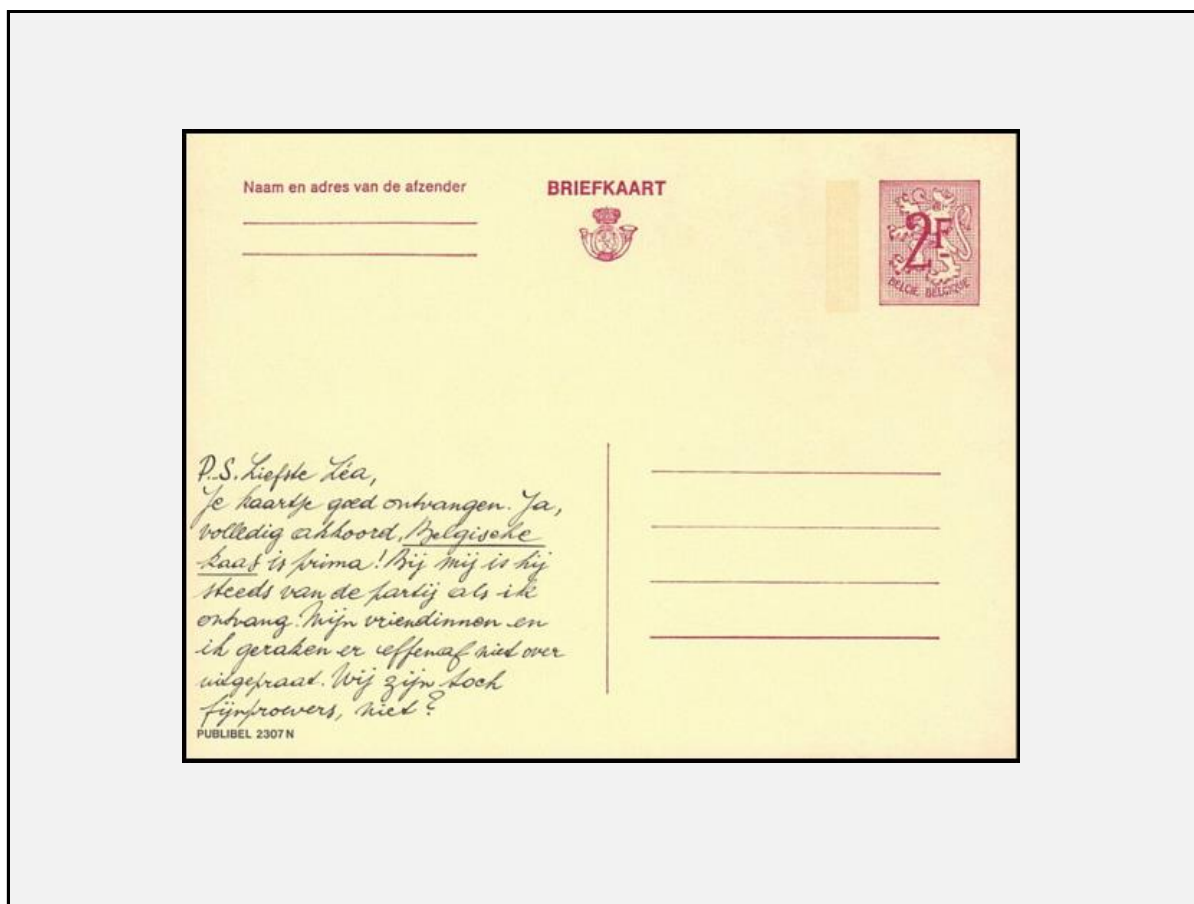 Naam en adres van de afzender
BRIEFKAART
2F
BELGIE BELGIQUE
P.S. Liefste Léa,
Je kaartje goed ontvangen. Ja,
volledig akkoord, Belgische
kaas is prima! Bij mij is hij
steeds van de partij als ik
ontvang. Mijn vriendinnen en
ik geraken er effenaf niet over
uitgepraat. Wij zijn toch
fijnproevers, niet?
PUBLIBEL 2307 N